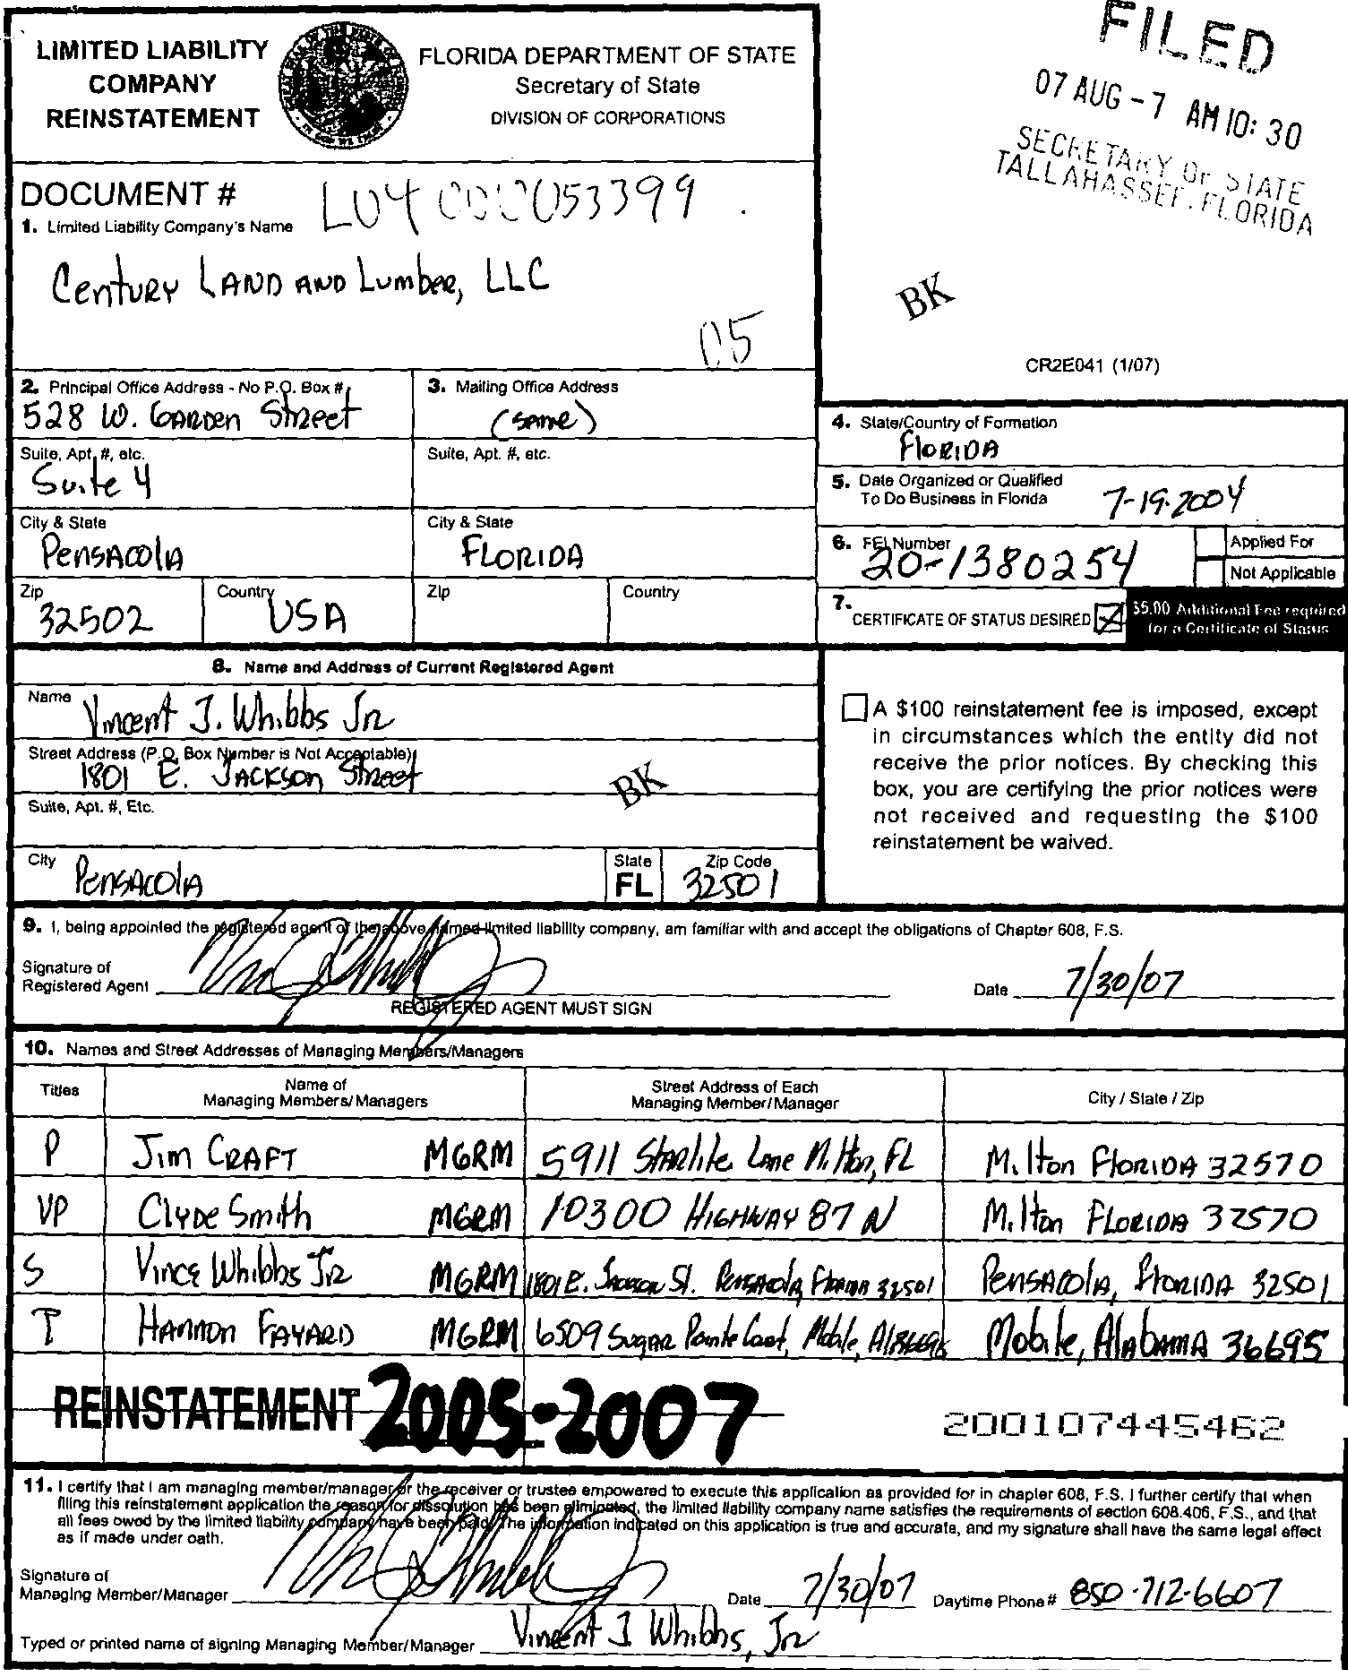 LIMITED LIABILITY
COMPANY
REINSTATEMENT
FLORIDA DEPARTMENT OF STATE
Secretary of State
DIVISION OF CORPORATIONS
FILED
07 AUG -7 AM 10:30
SECRETARY OF STATE
TALLAHASSEE, FLORIDA
DOCUMENT # L04000053399
1. Limited Liability Company's Name
Century LAND AND Lumber, LLC
05
BK
CR2E041 (1/07)
2. Principal Office Address - No P.O. Box #
528 W. GARDEN Street
3. Mailing Office Address
(SAME)
Suite, Apt. #, etc.
Suite 4
Suite, Apt. #, etc.
City & State
PENSACOlA
City & State
FLORIDA
Zip
32502
Country
USA
Zip
Country
4. State/Country of Formation
FloRIDA
5. Date Organized or Qualified
To Do Business in Florida 7-19-2004
6. FEI Number
20-1380254
Applied For
Not Applicable
7. CERTIFICATE OF STATUS DESIRED
$5.00 Additional Fee required
for a Certificate of Status
8. Name and Address of Current Registered Agent
Name Vincent J. Whibbs JR
Street Address (P.O. Box Number is Not Acceptable)
1801 E. JACKSON Street
BK
Suite, Apt. #, Etc.
City PENSACOlA
State
FL
Zip Code
32501
A $100 reinstatement fee is imposed, except
in circumstances which the entity did not
receive the prior notices. By checking this
box, you are certifying the prior notices were
not received and requesting the $100
reinstatement be waived.
9. I, being appointed the registered agent of the above named limited liability company, am familiar with and accept the obligations of Chapter 608, F.S.
Signature of
Registered Agent
REGISTERED AGENT MUST SIGN
Date 7/30/07
10. Names and Street Addresses of Managing Members/Managers
Titles
Name of
Managing Members/Managers
Street Address of Each
Managing Member/Manager
City / State / Zip
P Jim CRAFT MGRM 5911 Starlite Lane Milton, FL Milton FloRIDA 32570
VP Clyde Smith MGRM 10300 HIGHWAY 87 N Milton FloRIDA 32570
S Vince Whibbs JR MGRM 1801 E. Jackson St. Pensacola, Florida 32501 PENSACOlA, FloRIDA 32501
T HARMON FAYARD MGRM 6509 Sugar Pointe Court, Mobile, Al 36695 Mobile, AlABAMA 36695
REINSTATEMENT 2005-2007
200107445462
11. I certify that I am managing member/manager or the receiver or trustee empowered to execute this application as provided for in chapter 608, F.S. I further certify that when
filing this reinstatement application the reason for dissolution has been eliminated, the limited liability company name satisfies the requirements of section 608.406, F.S., and that
all fees owed by the limited liability company have been paid. The information indicated on this application is true and accurate, and my signature shall have the same legal effect
as if made under oath.
Signature of
Managing Member/Manager
Date 7/30/07 Daytime Phone # 850-712-6607
Typed or printed name of signing Managing Member/Manager Vincent J Whibbs, JR